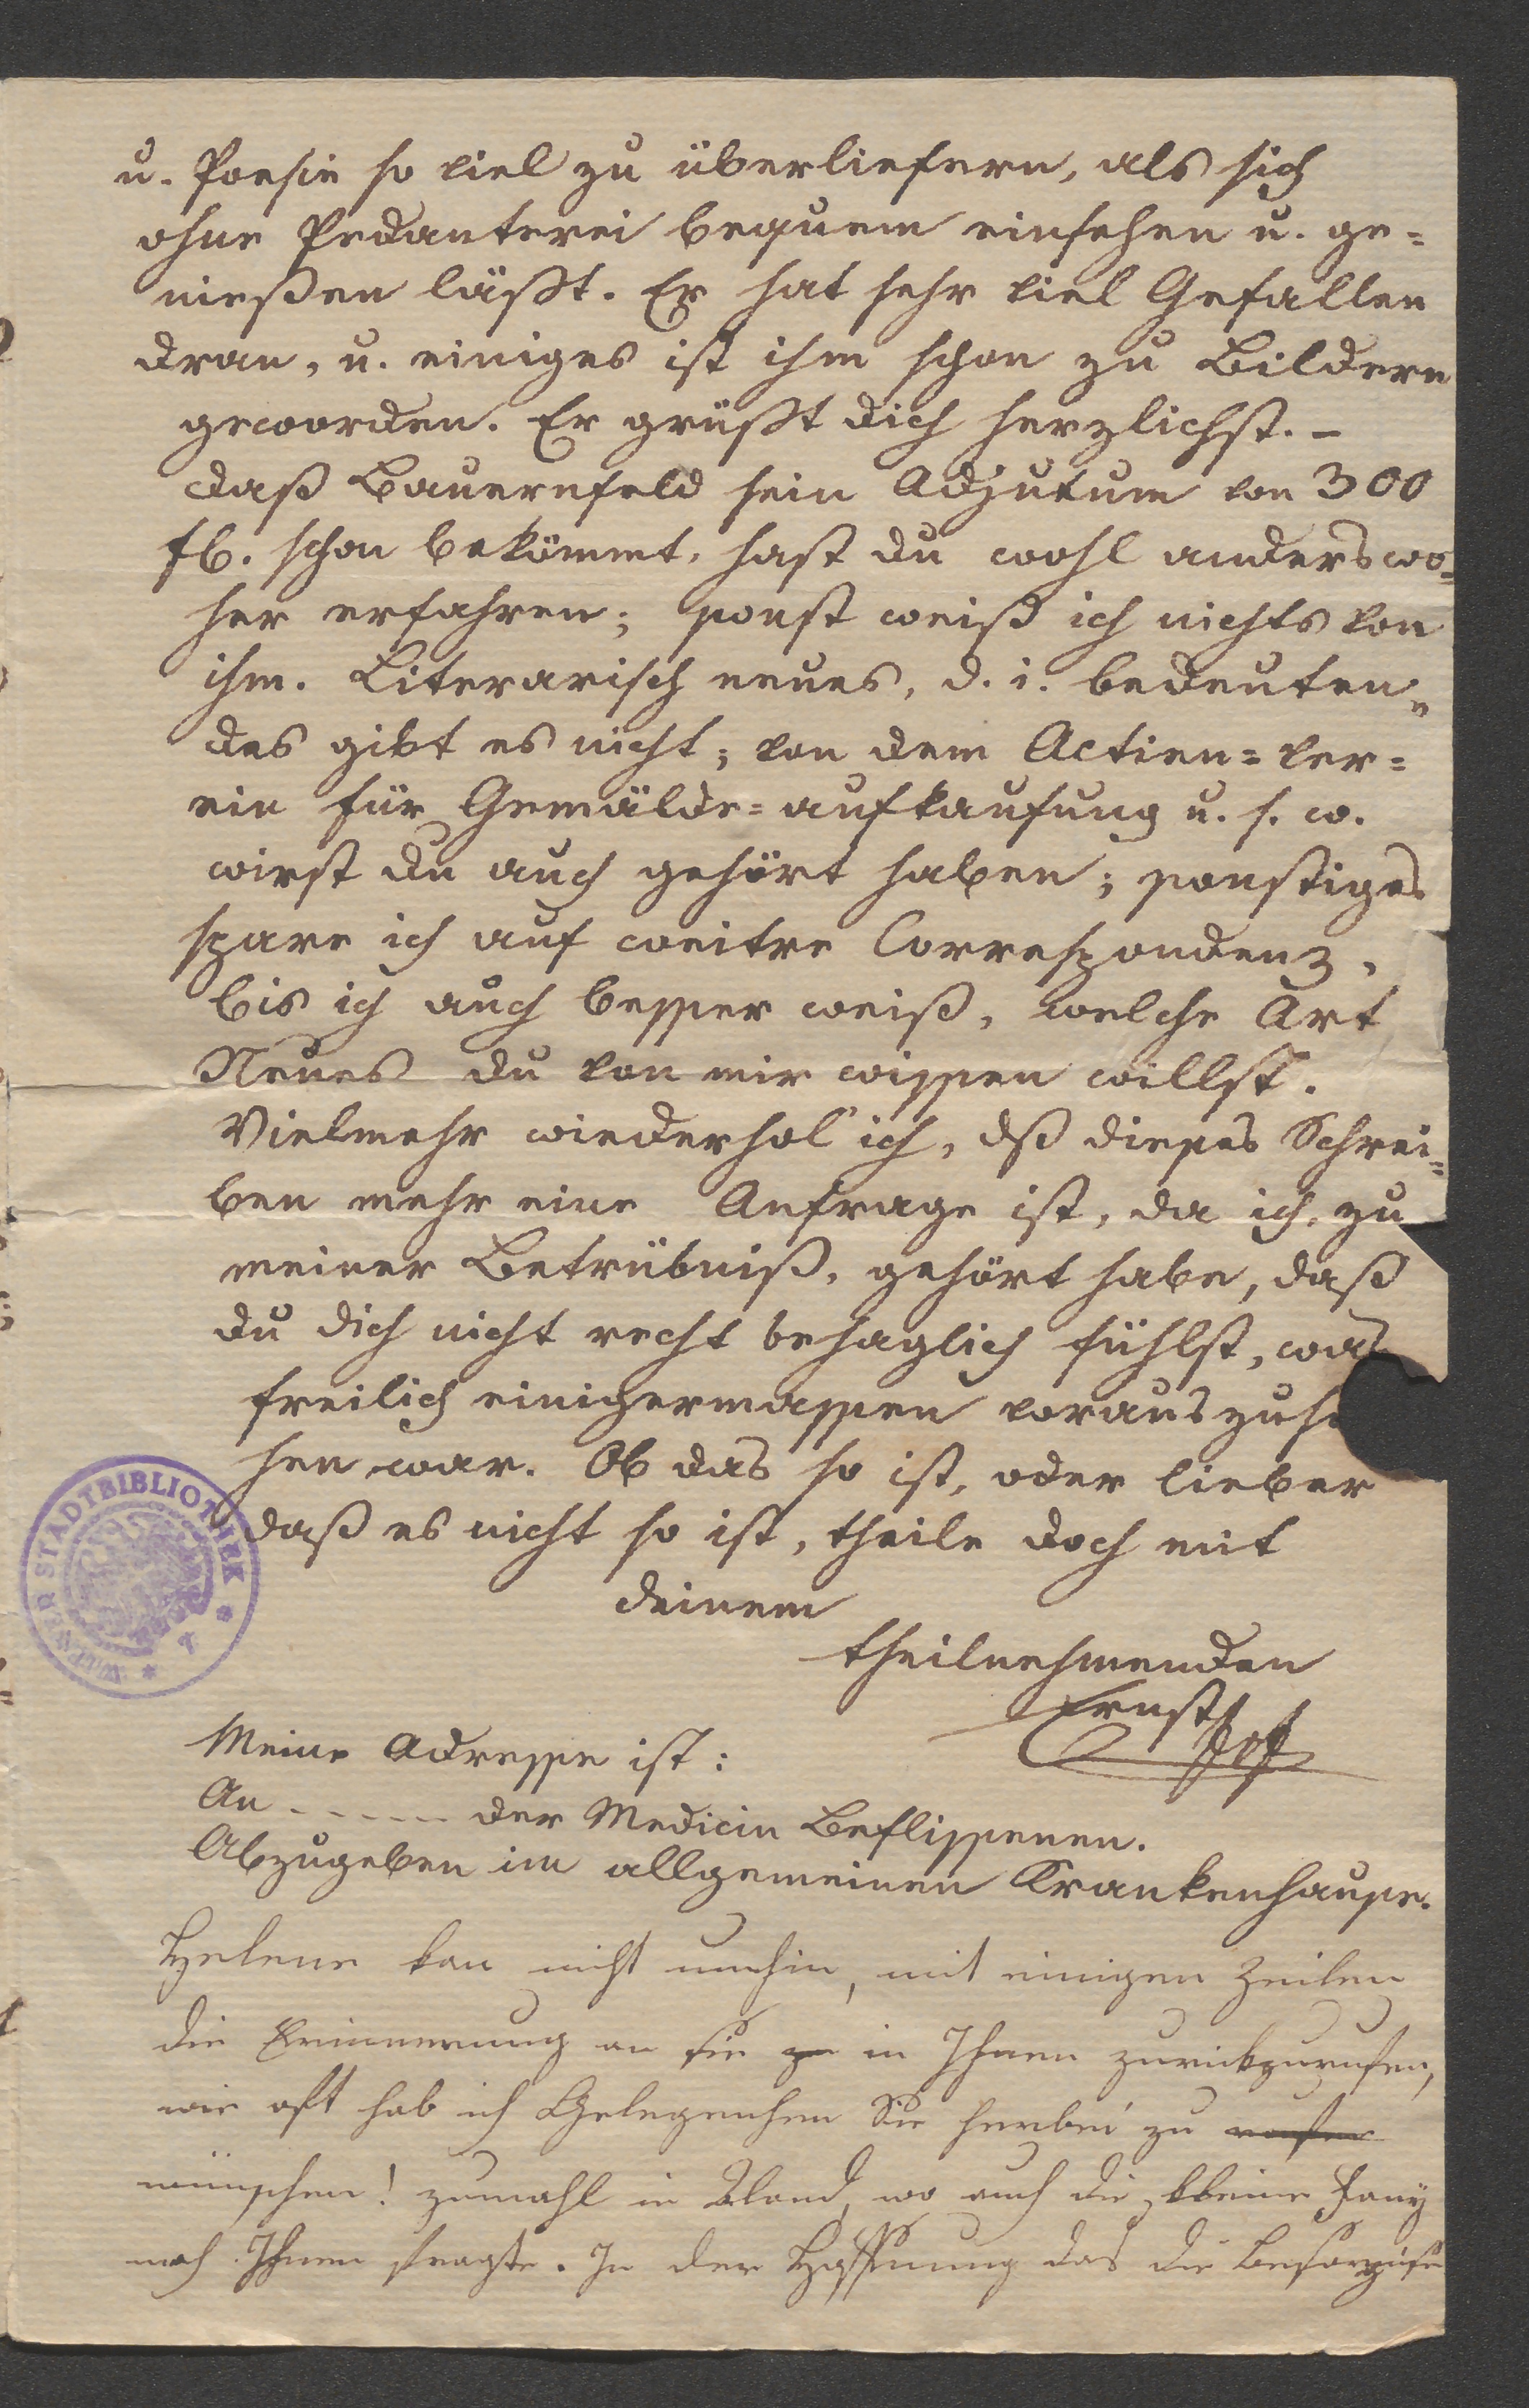 u. Poesie so viel zu überliefern, als sich
ohne Pedanterei bequem einsehen u. ge=
nießen läßt. Er hat sehr viel Gefallen
dran, u. einiges ist ihm schon zu Bildern
geworden. Er grüßt dich herzlichst. –
daß Bauernfeld sein Adjutum von 300
fl. schon bekömmt, hast du wohl anderswo=
her erfahren; sonst weiß ich nichts von
ihm. Literarisch neues, d. i. bedeuten=
des gibt es nicht; von dem Actien=ver=
ein für Gemälde=aufkaufung u. s. w.
wirst du auch gehört haben; sonstiges
spare ich auf weitre Correspondenz,
bis ich auch besser weiß, welche Art
Neues du von mir wissen willst.
Vielmehr wiederhol' ich, dß dieses Schrei=
ben mehr eine Anfrage ist, da ich, zu
meiner Betrübniß, gehört habe, daß
du dich nicht recht behaglich fühlst, was
freilich einigermassen vorauszuse
hen war. Ob das so ist, oder lieber
daß es nicht so ist, theile doch mit
deinem
theilnehmenden
Ernst
WIENER STADTBIBLIOTHEK
Meine Adresse ist:
An ------ der Medicin Beflissenen.
Abzugeben im allgemeinen Krankenhause.
Helene kan nicht umhin, mit einigen Zeilen
die Erinnerung an sie zu in Ihnen zurückzurufen,
wie oft hab ich Gelegenheu Sie herbei zu rufen
wünschen! zumahl in wo auch die kleine Fany
nach Ihnen fragte. In der Hoffnung das die